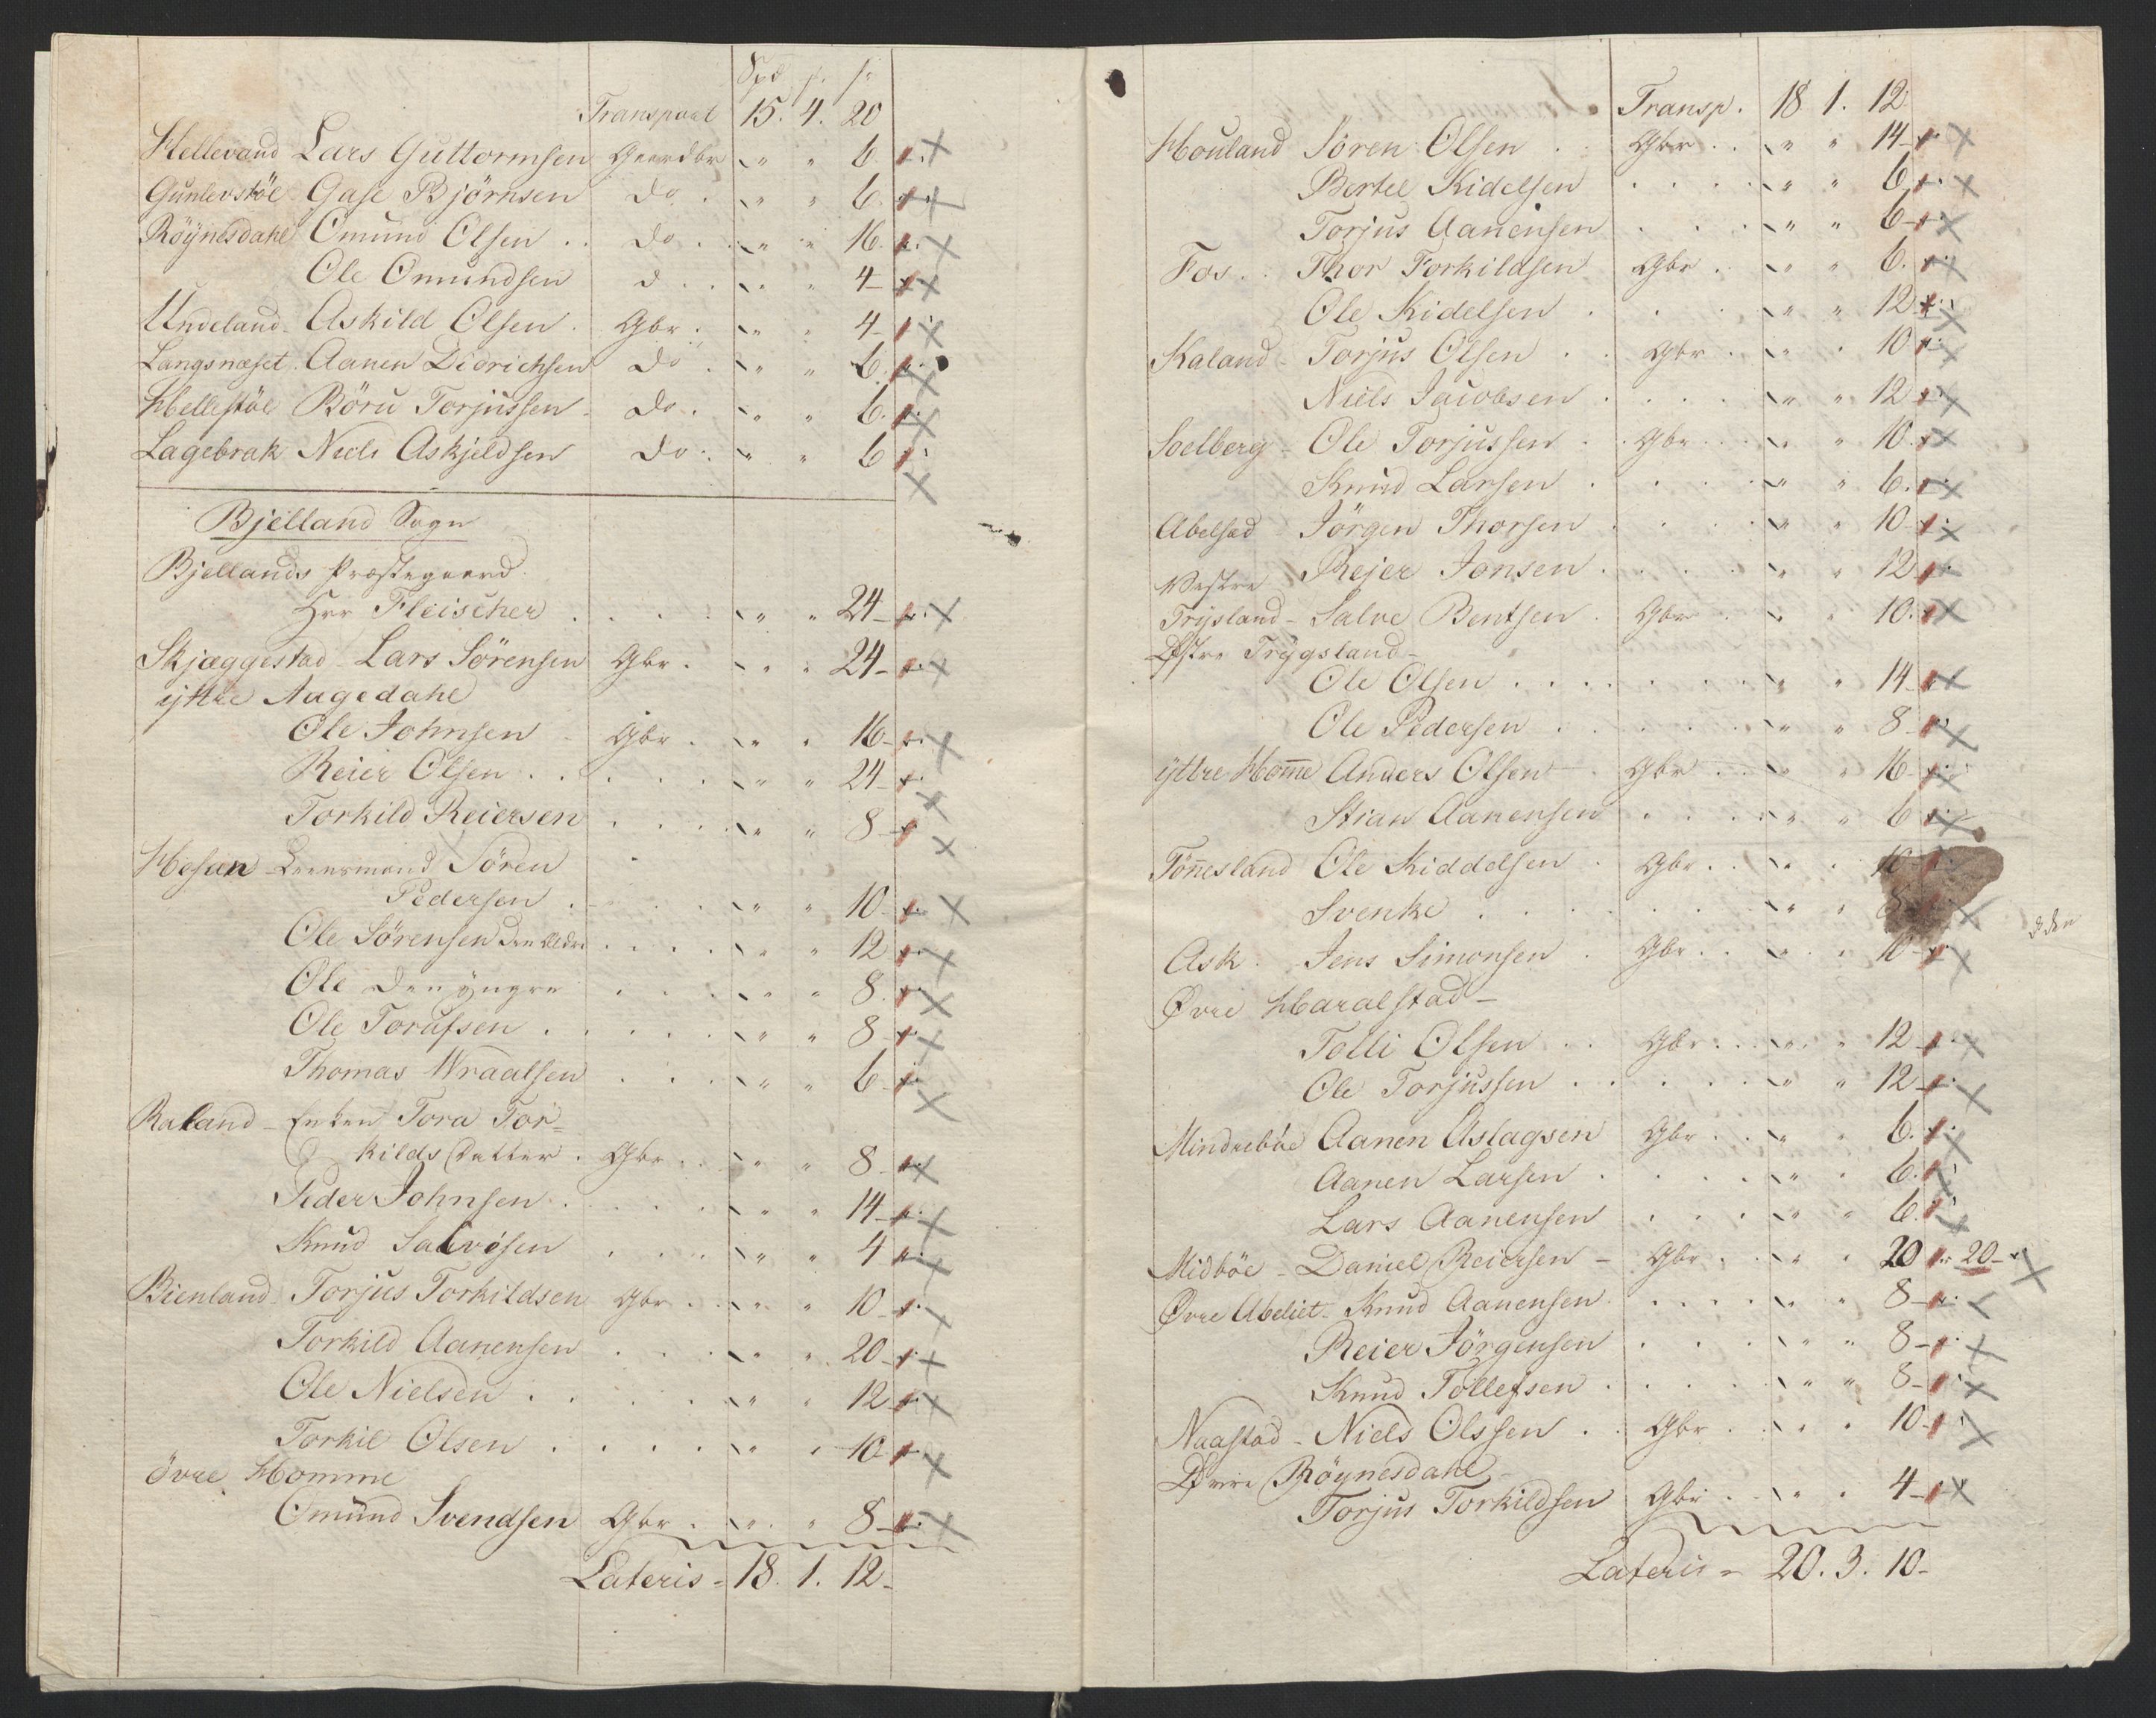 Spd f. s:
Transport 15. 4. 20
Hellevand Lars Guttormsen Gaardbr " " 6.
Gunlevstöl Gase Björnsen do. " " 6.
Röynesdahl Omund Olsen .. do. " " 16.
Ole Omundsen d .. " " 4-
Undeland- Askild Olsen. Gbr. " " 4-
Langsnæset. Aanen Didrichsen do. " " 6.
Hellestöl Böru Torjussen- do. " " 6.
Lagebrak Niels Askjeldsen do. " " 6
Bjelland Sogn
Bjellands Præstegaard
Herr Fleischer . . . . " " 24-
Skjæggestad- Lars Sörensen Gbr. " " 24-
ÿttre Augedahl
Ole Johnsen - Gbr. " " 16-
Reier Olsen . . . . " " 24-
Torkild Reiersen . . . . " " 8-
Hesaa Leensmand Sören
Pedersen . . . . " " 10-
Ole Sörensen den Ældre . . . . " " 12
Ole den ÿngre . . . . " " 8.
Ole Torassen . . . . " " 8-
Thomas Wraalsen . . . . " " 6-
Raland- Enken Tora Tor=
kilds Datter. Gbr. . " " 8-
Peder Johnsen . . . . " " 14-
Knud Salvesen . . . . " " 4
Bienland- Torjus Torkildsen Gbr. . " " 10-
Torkild Aanensen . . . . " " 20-
Ole Nielsen . . . . " " 12
Torkil Olsen . . . . " " 10-
övre Homme
Omund Svendsen Gbr. " " 8-
Lateris- 18. 1. 12-
Transp. 18 1. 12
Houland Sören Olsen . . Gbr . . " " 14-
Bertel Kidelsen . . . . " " 6.
Torjus Aanensen . . . . " " 6-
Fos. . Thor Torkildsen Gbr . . " " 6.
Ole Kidelsen . . . . " " 12
Kaland- Torjus Olsen . . Gbr . " " 10
Niels Jacobsen . . . . " " 12
Soelberg- Ole Torjussen . Gbr . . " " 10.
Knud Larsen . . . . " " 6.
Abelsæd Jörgen Thorsen . . . . " " 10-
Reier Jonsen . . . . " " 12
Vestre
Trÿsland- Salve Bentsen. Gbr . . " " 10.
Østre Trÿgsland-
Ole Olsen . . . . " " 14-
Ole Pedersen . . . . " " 8-
ÿttre Hom̅e Anders Olsen Gbr . . " " 16-
Stian Aanensen . . . . " " 6
Tön̅esland Ole Kiddelsen . Gbr . . " " 10
Svenke . . . . " " 8
Ask. Jens Simonsen . Gbr . . " " 10-
Øvre Haralstad-
Tolli Olsen . . Gbr . . " " 12-
Ole Torjussen . . . . " " 12-
Mindreböe Aanen Aslagsen Gbr . . " " 6.
Aanen Larsen . . . . " " 6.
Lars Aanensen . . . . " " 6.
Midböe- Daniel Reiersen- Gbr . . " " 20 20-
Øvre Abeliet- Knud Aanensen . . . . " " 8-
Reier Jörgensen . . . . " " 8-
Knud Tollefsen . . . . " " 8-
Naastad- Niels Olssen . . Gbr . . " " 10-
Øvre Röynesdahl-
Torjus Torkildsen Gbr . . " " 4-
Lateris- 20. 3. 10-